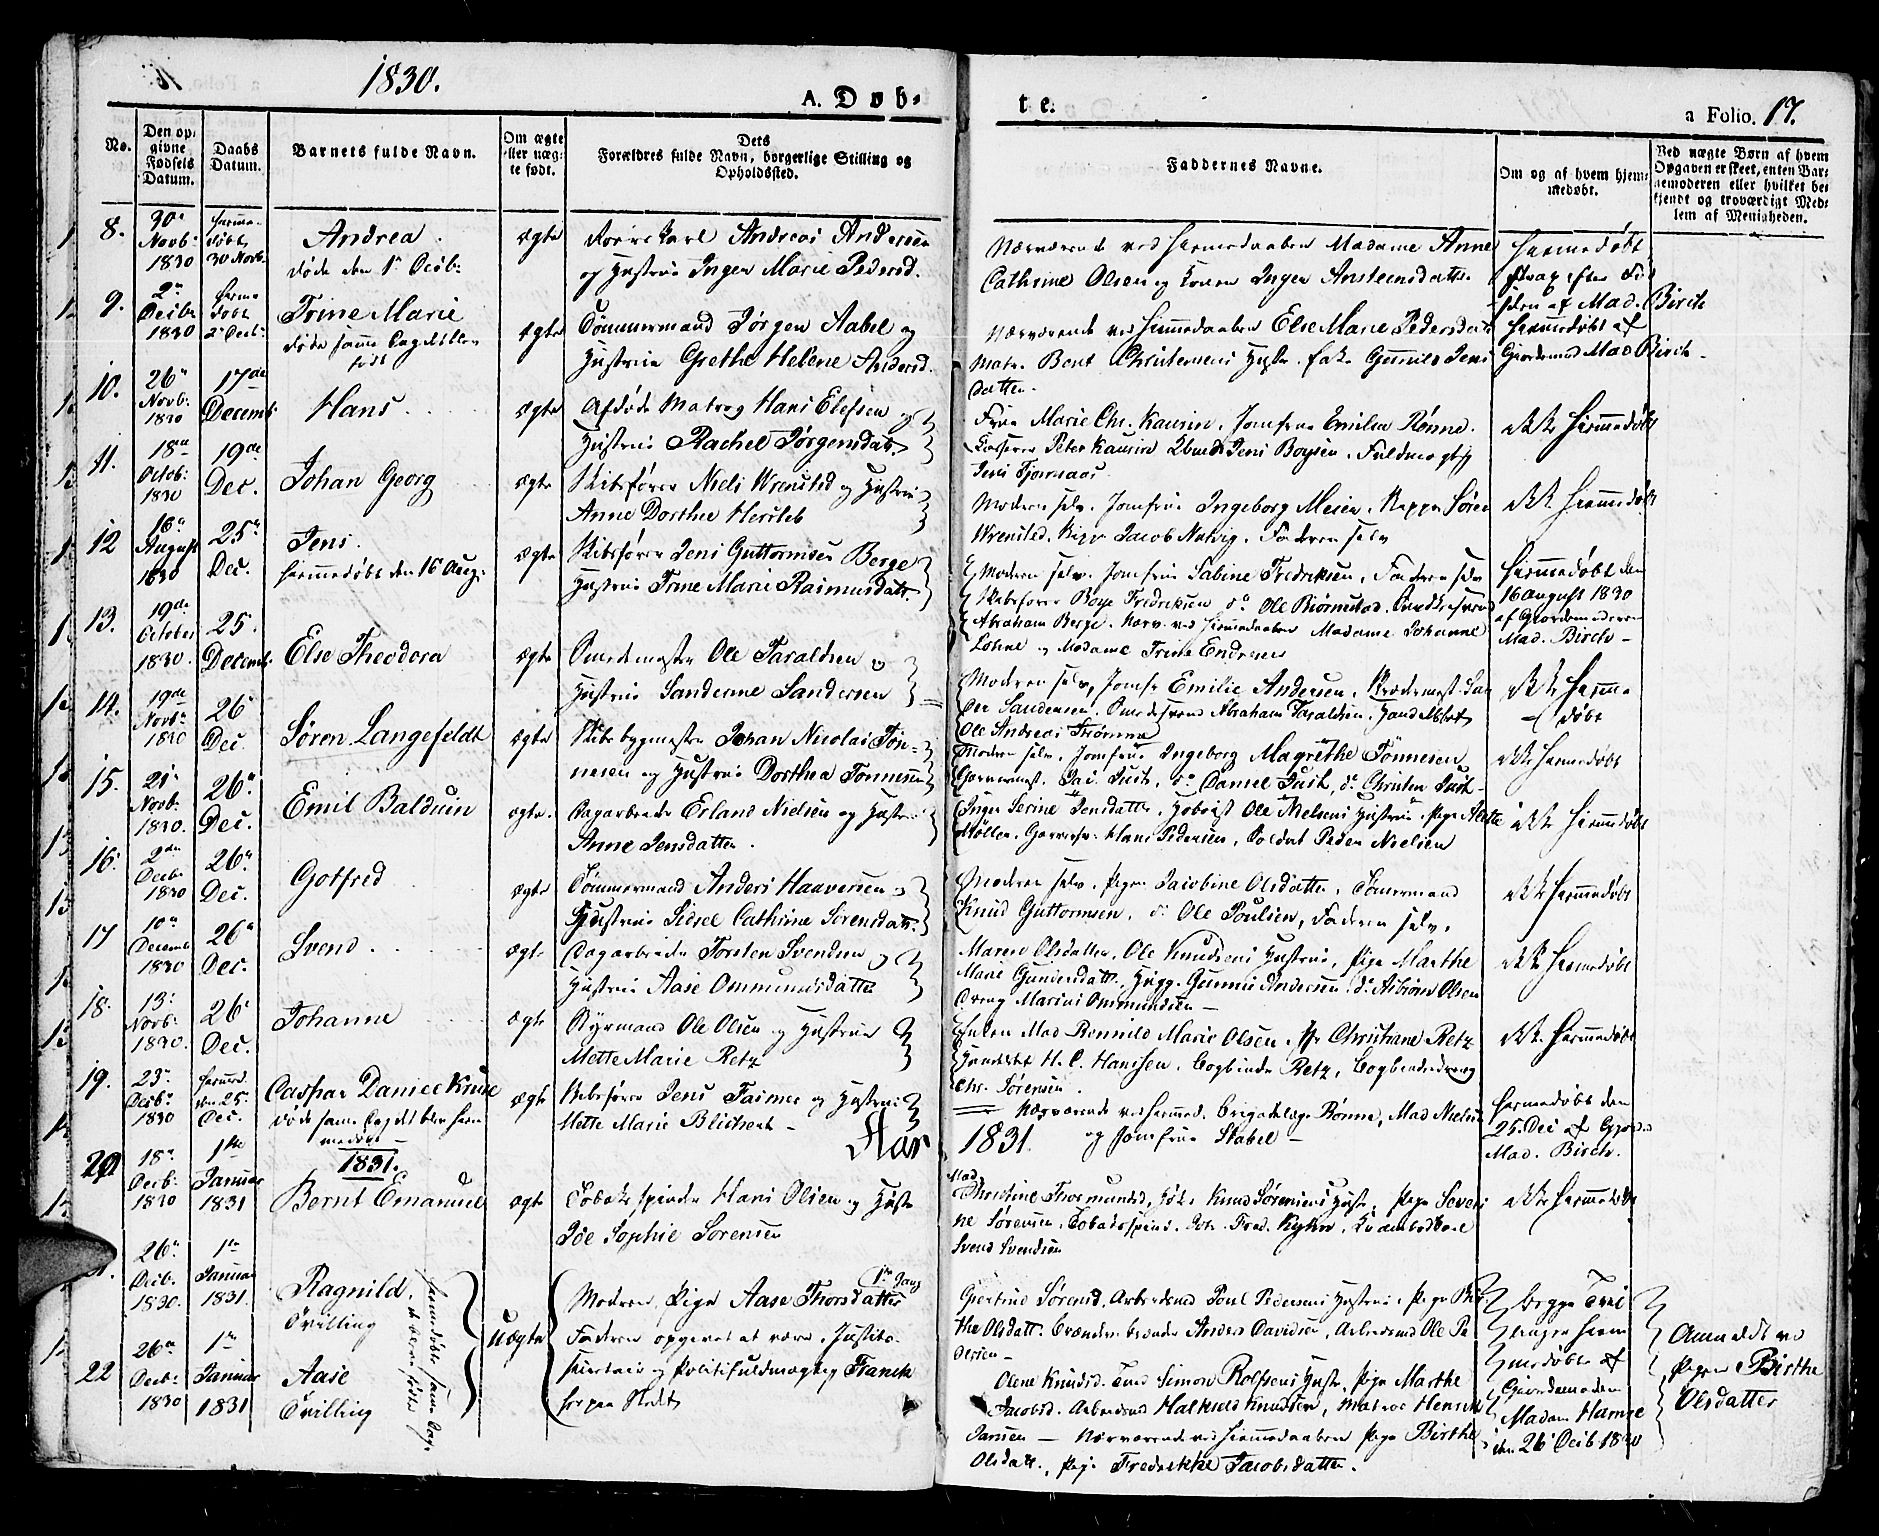 1830.
A. Døb-
te.
a Folio. 17.
No.
Den op-
givne
Fødsels
Datum.
Daabs
Datum.
Barnets fulde Navn.
Om ægte
eller uæg-
te født.
Dets
Forældres fulde Navn, borgerlige Stilling og
Opholdssted.
Faddernes Navne.
Om og af hvem hjem-
medøbt.
Ved uægte Børn af hvem
Opgaven er skeet, enten Bar-
nemoderen eller hvilket be-
kjendt og troværdigt Med-
lem af Menigheden.
8.
30
Novb:
1830
hjemme-
døbt
30 Novb.
Andrea
døde den 1 Decb:
ægte
Andreas Andersen
og Hustrue Inger Marie Pedersd.
Nærværende ved Hjemmedaaben Madame Anne
Cathrine Olsen og Konen Inger Ansteensdatter
hjemmedøbt
strax efter Fød
selen af Mad. Birch
9.
2
Decbr
1830
hjemme
døbt
2 Decb:
Trine Marie
døde samme Dag det blev
født
ægte
Tømmermand Jørgen Aabel og
Hustrue Grethe Helene Andersd.
Nærværende ved Hjemmedaaben Else Marie Pedersdatt
Matr. Bent Christensens Hustr. Enke Gunnild Jens
datter.
hjemmedøbt af
Gjordemod Mad Birch
10.
26
Novb.
1830
17de
Decemb:
Hans
ægte
Afdøde Matros Hans Elefsen og
Hustrue Rachel Jørgensdatr
Frue Marie Chr. Kausin, Jomfrue Emilia Rønne.
Peter Kausin Jens Boysen, Fuldmægtig
Jens Fjormaas
ikke hjemmedøbt
11.
18
Octob:
1830
19de
Dec.
Johan Georg
ægte
Skibsfører Niels Wrensted og Hustrue
Anne Dorthe Hersleb
Moderen selv. Jomfrue Ingeborg Meier, Søren
Wrensted, Jacob Natvig, Faderen selv
ikke hjemmedøbt
12
16
August
1830
25
Dec.
Jens.
hjemmedøbt den 16 Aug:
ægte
Skibsfører Jens Guttormsen Berge
Hustrue Trine Marie Rasmusdatr.
Moderen selv. Jomfrue Sabine Fredriksen, Faderen selv
Skibsfører Boye Fredriksen do Ole Biørnstad,
Abraham Berge. Nærv. ved hjemmedaaben Madame Johanne
Løhne og Madame Trine Endresen
hjemmedøbt den
16 august 1830
af Gjordemoderen
Mad. Birch
13.
19de
October
1830.
25.
Decemb.
Else Theodora
ægte
Smedemester Ole Taraldsen og
Hustrue Sanderine Sandersen
Moderen selv, Jomfr Emilie Andersen, San
der Sandersen, Smedesvend Abraham Taraldsen,
Ole Andreas Thrømme
ikke hjemme
døbt
14.
19de
Novbr
1830
26
Dec.
Søren Langefeldt
ægte
Skibsbygmester Johan Nicolai Tøn-
nesen og Hustrue Dorthea Tønnesen
Moderen selv, Jomfrue Ingeborg Magrethe Tønnesen
Garvermest. Jac. Just, do Daniel Just, do Christen Just
ikke hjemmedøbt
15.
21
Novb.
1830.
26
Dec.
Emil Balduin
ægte.
Dagarbeider Erland Nielsen og Hustrue
Anne Jensdatter.
Inger Serine Jensdatter, Ole Nielsens Hustrue, Pige Alette
Møller, Hans Pedersen, Soldat Peder Nielsen
ikke hjemmedøbt
16.
2den
Decbr
1830
26
Dec.
Gotfred
ægte
Tømmermand Anders Haavorsen og
Hustrue Sidsel Cathrine Sørensdatr.
Moderen selv. Pigen Jacobine Olsdatter, Tømermand
Knud Guttormsen, do Ole Poulsen, Faderen selv.
ikke hjemmedøbt
17
10
Decemb
1830
26
Dec.
Svend
ægte
Dagarbeider Torsten Svendsen og
Hustrue Aase Ommundsdatter
Maren Olsdatter, Ole Knudsens Hustrue, Pige Marthe
Marie Gundersdatt., Gunnu Andersen, do Asbiørn Olsen
Dreng Marius Ommundsen
ikke hjemmedøbt
18.
13
Novb.
1830.
26
Dec.
Johanne
ægte
Styrmand Ole Olsen og Hustrue
Mette Marie Retz
Enken Mad Ronnild Marie Olsen, Jfr Christiane Retz
H. C. Hansen, Bogbinder Retz, Bogbinderdreng
Chr. Sørensen.
ikke hjemmedøbt
19.
23
Decbr
1830
hjemmd.
den 25
Dec.
Caspar Daniel Knud
døde samme Dag det blev hjem
medøbt
ægte
Skibsfører Jens Fasmer og Hustrue
Mette Marie Blichert
Nærværende ved hjemmed. Brigadelæge Rønne, Mad Nielsen
og Jomfrue Stabel
hjemmedøbt den
25 Dec af Gjord
Mad. Birch.
Aar
1831
20
18
Decb:
1830
1ste
Januar
1831
1831.
Bernt Emanuel
ægte
Tobaksspinder Hans Olsen og Hustr
Ide Sophie Sørensen
Mad
Christine Thormundsd, Knud Sørensens Hustr, Pige Severi
ne Sørensen, Tobaksspind. Fred. Kyhn,
Svend Svendsen
ikke hjemmedøbt
21.
26
Decb.
1830.
1
Januar
1831.
Ragnild.
Tvilling
hjemmedøbte samme Dag
de bleve fødte
uægte
1ste Gang
Moderen, Pige Aase Thorsdatter
Faderen opgivet at være, Justits-
secretair og Politifuldmægtig Franck
her paa Stedet
Giertrud Sørensd, Arbeidsmd Poul Pedersens Hustrue, Pige Bir
the Olsdatt. Anders Davidsen, Arbeidsmd Ole Pe
dersen
Begge Tvil
linger hjem
medøbte af
Gjordemoderen
Madam Hansse
den 26 Decb 1830
Anmeldt ved
Pigen Birthe
Olsdatter
22
26
Decb:
1830
1
Januar
1831
Aase
Tvilling
Olene Knudsd. Simon Rolfsens Hustr, Pige Marthe
Jacobsd. Arbeidsmd Halkield Knudsen, Matros Henrik
Jansen — Nærværende ved hjemmedaaben Pige Birthe
Olsdatt., Pige Fredrikke Jacobsdatter.